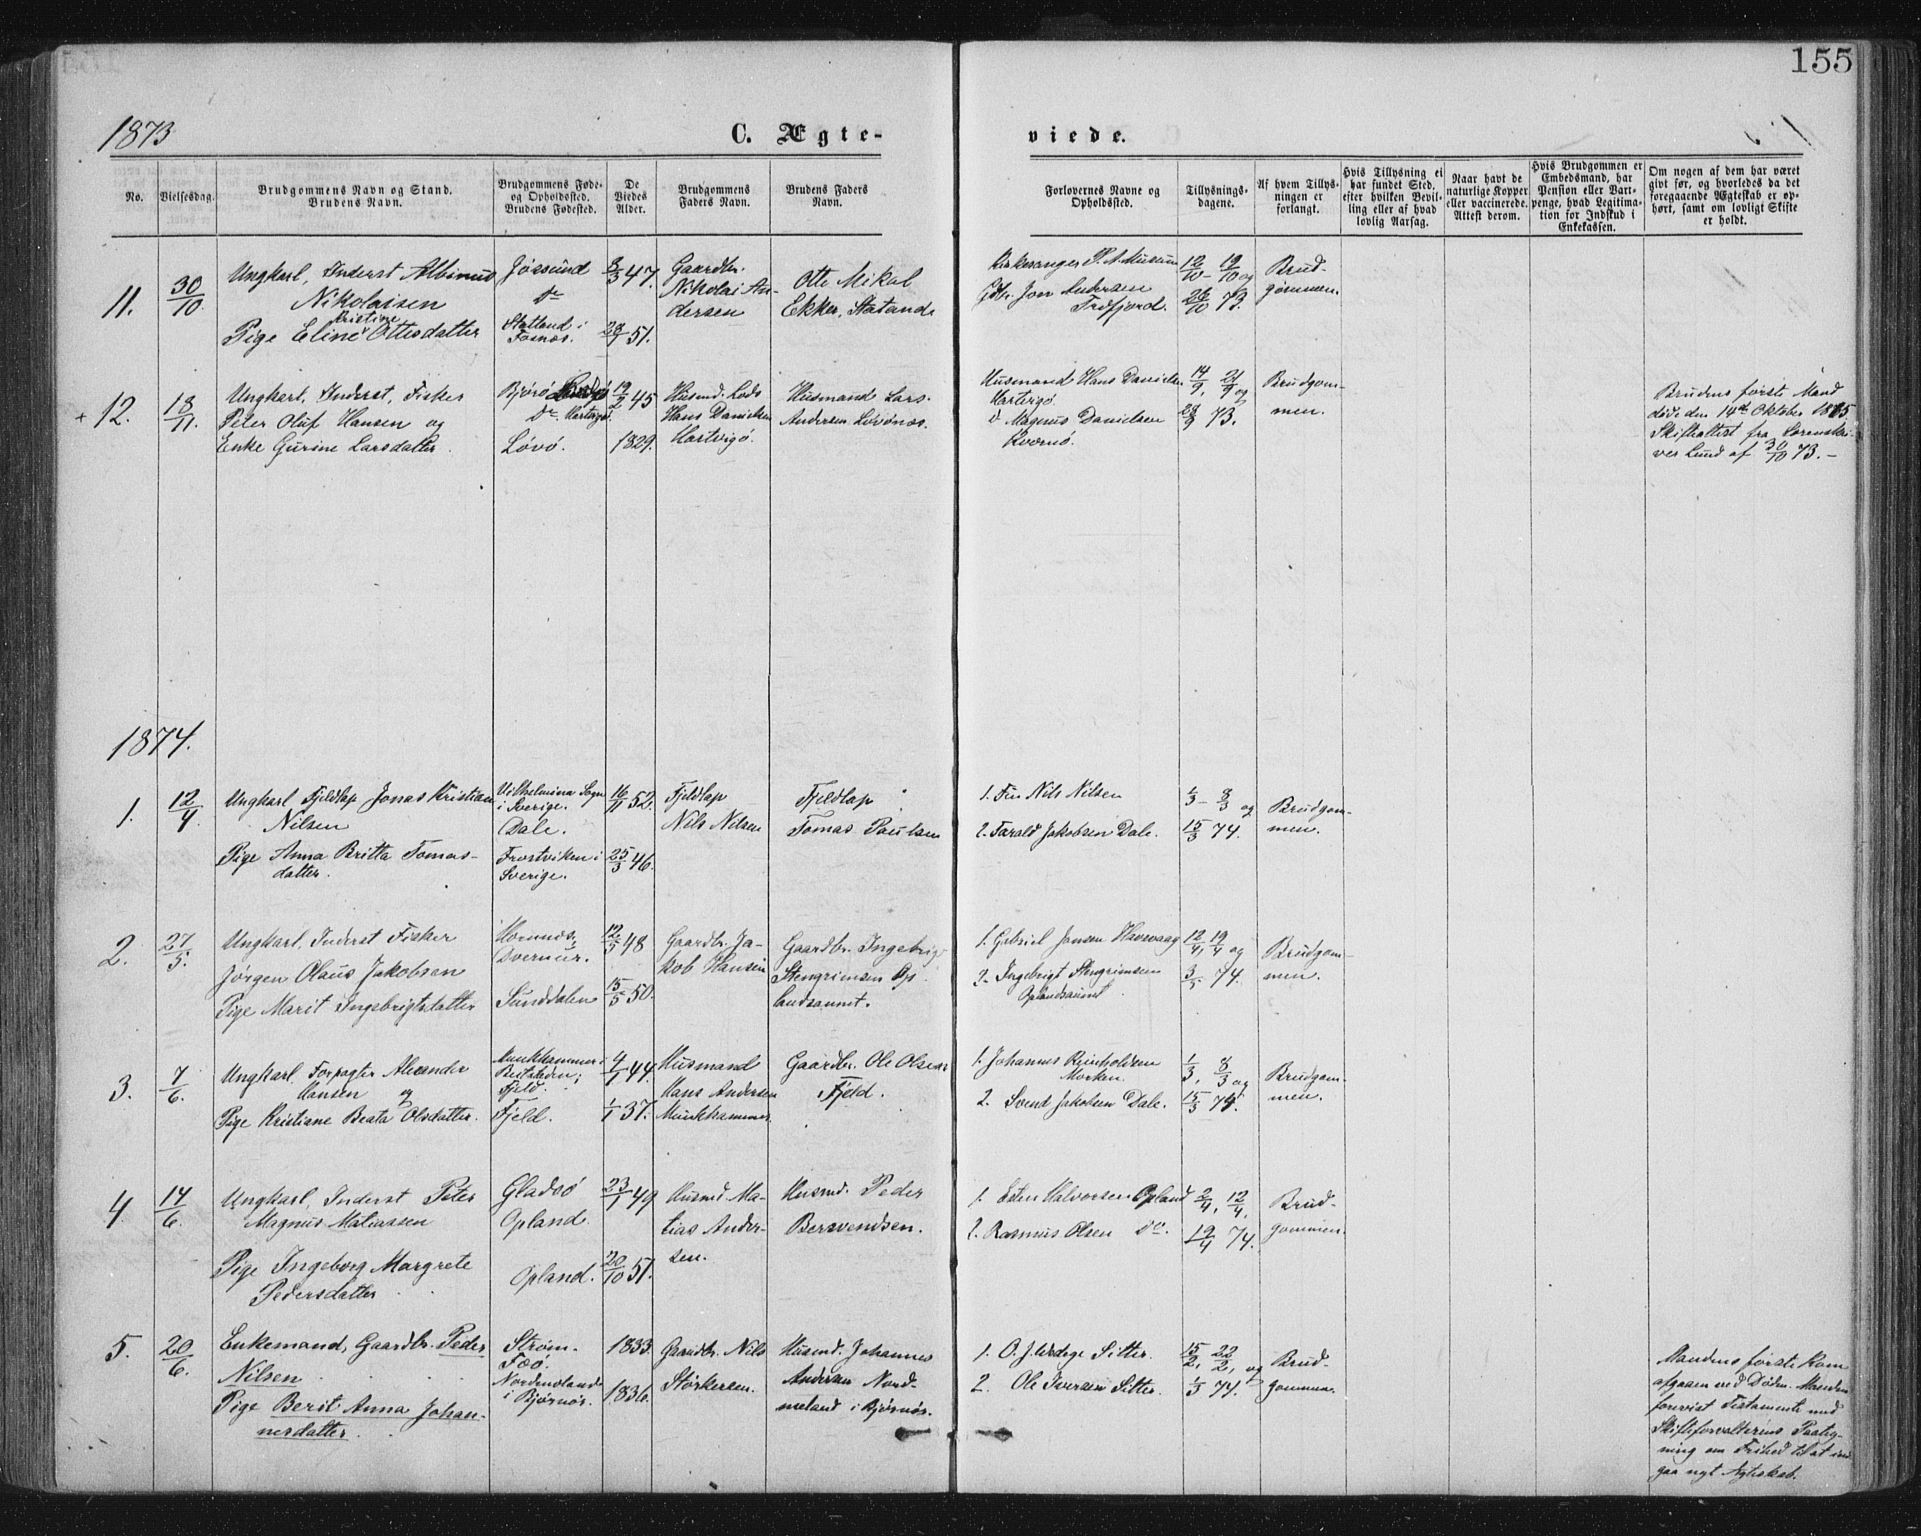 155
1873
C. Ægte-
viede.
No.
Vielsesdag.
Brudgommens Navn og Stand.
Brudens Navn.
Brudgommens Føde-
og Opholdssted.
Brudens Fødested.
De
Viedes
Alder.
Brudgommens
Faders Navn.
Brudens Faders
Navn.
Forlovernes Navne og
Opholdssted.
Tillysnings-
dagene.
Af hvem Tillys-
ningen er
forlangt.
Hvis Tillysning ei
har fundet Sted,
efter hvilken Bevil-
ling eller af hvad
lovlig Aarsag.
Naar havt de
naturlige Kopper
eller vaccinerede.
Attest derom.
Hvis Brudgommen er
Embedsmand, har
Pension eller Vart-
penge, hvad Legitima-
tion for Indskud i
Enkekassen.
Om nogen af dem har været
givt før, og hvorledes da det
foregaaende Ægteskab er op-
hørt, samt om lovligt Skifte
er holdt.
11.
30/10.
Ungkarl, Inderst Albinus
Nikolaisen
Kristine
Pige Eline Ottesdatter
Jøssund
do
Statland i
Fosnes.
8/3 47.
28/7 51.
Gaardbr.
Nikolai An-
dersen
Otto Mikal
Ekker, Statland.
Kirkesanger P. A. Musum
Gdbr. Jon Andersen
Trefjord.
12/10 - 19/10 og
26/10 73.
Brud-
gommen.
+ 12.
18/11.
Ungkarl, Inderst, Fisker
Peter Oluf Hansen og
Enke Gurine Larsdatter
Bjørø
do Hartvigø.
Løvø.
19/2 45
1829.
Husmd. Lods
Hans Danielsen
Hartvigø.
Husmand Lars
Andersen Løvønes.
Husmand Hans Danielsen
Hartvigø
do Magnus Danielsen
Kvernø.
14/9, 21/9 og
28/9 73.
Brudgom-
men.
Brudens første Mand
døde den 14de Oktober 1865
Skifteattest fra Sorenskri-
ver Lund af 30/10 73. -
1874.
1.
12/4.
Ungkarl Fjeldlap Jonas Kristian
Nilsen
Pige Anna Britta Tomas-
datter.
Vilhelmina Sogn
i Sverige.
Dale.
Frostviken i
Sverige.
16/11 52.
25/3 46.
Fjeldlap
Nils Nilsen
Fjeldlap
Tomas Paulsen
1. Fin Nils Nilsen
2. Tarald Jakobsen Dale.
1/3 - 8/3 og
15/3 74.
Brudgom-
men.
2.
27/5.
Ungkarl, Inderst Fisker
Jørgen Olaus Jakobsen
Pige Marit Ingebrigtsdatter
Sunddalen
12/5 48
15/5 50.
Gaardbr. Ja-
kob Hansen
Gaardbr. Ingebrigt
Stengrimsen Op-
landsaunet.
1. Gabriel Jansen Havevaag
2. Ingebrigt Stengrimsen
Oplandsaunet
12/4, 19/4 og
3/5 74.
Brudgom-
men.
3.
7/6.
Ungkarl, Forpagter Alexander
Hansen og
Pige Kristiane Beata Olsdatter.
Munkhammer i
Beitstaden;
Fjeld.
Fjeld.
4/1 44.
1/1 37.
Husmand
Hans Andersen
Munkhammer.
Gaardbr. Ole Olsen
Fjeld.
1. Johannes Reinholdsen
Morken.
2. Svend Jakobsen Dale.
1/3, 8/3 og
15/3 74.
Brudgom-
men.
4.
14/6.
Ungkarl, Inderst Peter
Magnus Matiassen
Pige Ingeborg Margrete
Pedersdatter
Gladsø
Opland.
Opland.
23/1 49
20/10 51.
Husmd Ma-
tias Ander-
sen.
Husmd. Peder
Bersvendsen.
1. Esten Halvorsen Opland
2. Rasmus Olsen do.
2/4, 12/4,
19/4 74.
Brud-
gommen.
5.
20/6.
Enkemand, Gaardbr. Peder
Nilsen
Pige Berit Anna Johan-
nesdatter.
Strøm-
Foø.
Nordmeland
i Bjørnør.
1833.
1836.
Gaardbr. Nils
Størkersen.
Husmd. Johannes
Andersen Nord-
meland i Bjørnør.
1. O. J. Sitter.
2. Ole Iversen Sitter.
15/2, 22/2, og
1/3 74.
Brud-
gommen.
Mandens første Kone
afgaaen ved Døden. Manden
forevist Testamente med
Skifteforvalterens Paateg-
ning om Frihed til at ind-
gaa nyt Ægteskab.